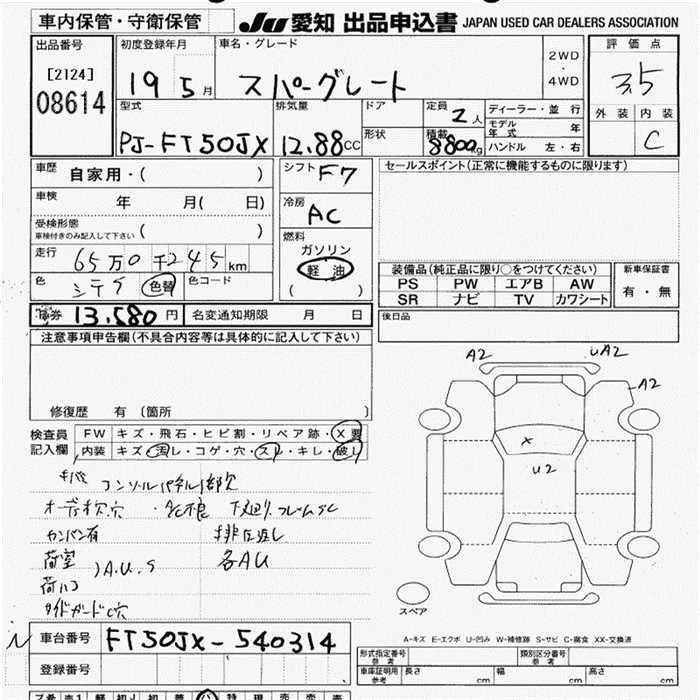 車内保管・守衛保管 JU 愛知 出品申込書 JAPAN USED CAR DEALERS ASSOCIATION
出品番号
[2124]
08614
初度登録年月
19 5月
車名・グレード
スパーグレート
2WD
・
4WD
評価点
3.5
外装 内装
C
型式
PJ-FT50JX
排気量
12.88CC
ドア
形状
定員
2人
積載
8800kg
ディーラー・並行
モデル年式 年
ハンドル 左・右
車歴
自家用・( )
車検
年 月( 日)
受検形態
車検付きのみ記入して下さい ( )
走行
65万0千245km
色
シテイ 色替 色コード
シフト F7
冷房
AC
燃料
ガソリン
軽油
( )
セールスポイント(正常に機能するものに限ります)
装備品(純正品に限り○をつけてください)
PS PW エアB AW
SR ナビ TV カワシート
新車保証書
有・無
券 13.580円 名変通知期限 月 日
後日品
注意事項申告欄(不具合内容等は具体的に記入して下さい)
修復歴 有 〔箇所 〕
検査員記入欄
FW キズ・飛石・ヒビ割・リペア跡・X要
内装 キズ・汚レ・コゲ・穴・スレ・キレ・破レ
コンソルパネル1部欠
カンバン有
荷室
A.U.S
各AU
サイドガードC穴
A2
uA2
A2
x
U2
スペア
A-キズ E-エクボ U-凹み W-補修跡 S-サビ C-腐食 XX-交換済
車台番号 FT50JX-540314
登録番号
形式指定番号 参考
類別区分番号 参考
車庫証明用 参考 長さ cm 幅 cm 高さ cm